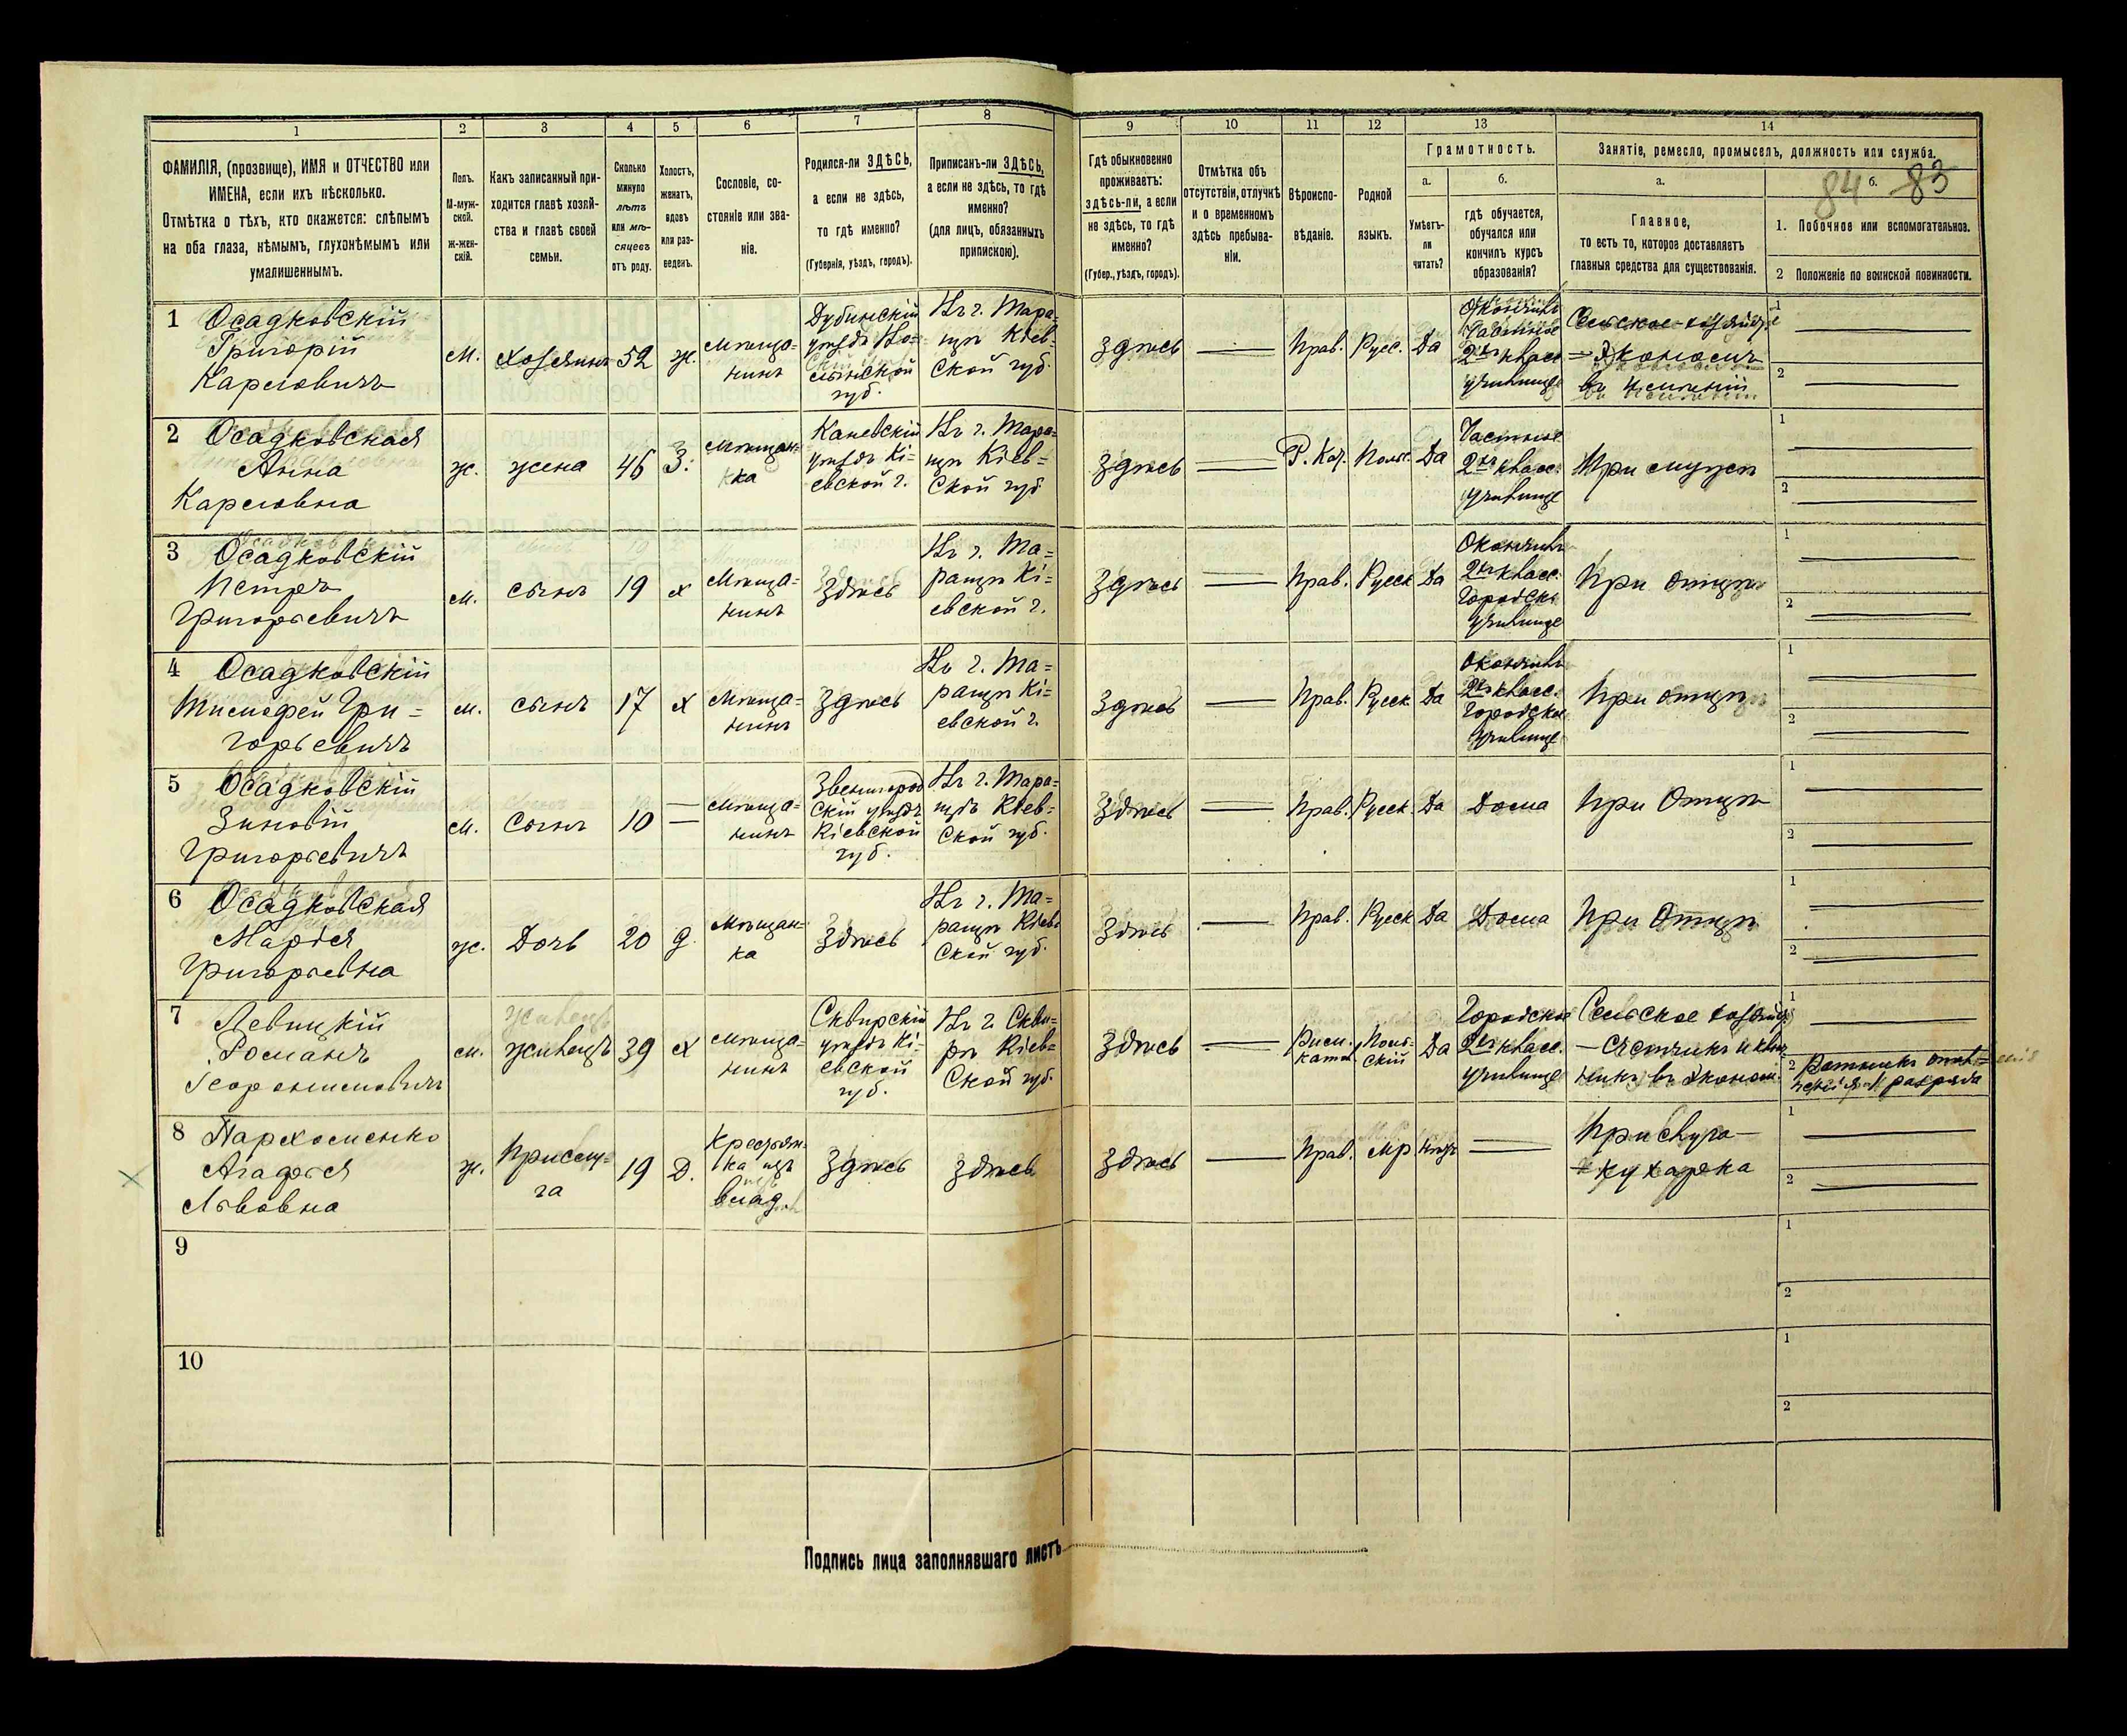 1 2 3 4 5 6 7 8 9 10 11 12 13 14
ФАМИЛІЯ, (прозвище), ИМЯ и ОТЧЕСТВО или
ИМЕНА, если ихъ нѣсколько.
Отмѣтка о тѣхъ, кто окажется: слѣпымъ
на оба глаза, нѣмымъ, глухонѣмымъ или
умалишеннымъ.
Полъ.
М-муж-
ской.
ж-жен-
скій.
Какъ записанный при-
ходится главѣ хозяй-
ства и главѣ своей
семьи.
Сколько
минуло
лѣтъ
или мѣ-
сяцевъ
отъ роду.
Холостъ,
женатъ,
вдовъ
или раз-
веденъ.
Сословіе, со-
стояніе или зва-
ніе.
Родился-ли ЗДѢСЬ,
а если не здѣсь,
то гдѣ именно?
(Губернія, уѣздъ, городъ).
Приписанъ-ли ЗДѢСЬ,
а если не здѣсь, то гдѣ
именно?
(для лицъ, обязанныхъ
припискою).
Гдѣ обыкновенно
проживаетъ:
здѣсь-ли, а если
не здѣсь, то гдѣ
именно?
(Губер., уѣздъ, городъ).
Отмѣтка объ
отсутствіи, отлучкѣ
и о временномъ
здѣсь пребыва-
ніи.
Вѣроиспо-
вѣданіе.
Родной
языкъ.
Грамотность.
а.
Умѣетъ-
ли
читать?
б.
гдѣ обучается,
обучался или
кончилъ курсъ
образованія?
Занятіе, ремесло, промыселъ, должность или служба.
а.
Главное,
то есть то, которое доставляетъ
главныя средства для существованія.
84 б. 83
1. Побочное или вспомогательное.
2 Положеніе по воинской повинности.
1 Осадковскій
Григорій
Карловичъ
м.
хозяинъ
52
ж.
мѣща-
нинъ
Дубинскій
уѣздъ Во-
лынской
губ.
Къ г. Тара-
щѣ Кіев-
ской губ.
Здѣсь
Прав.
Русс.
Да
Окончилъ
Частное
2хъ класс.
училище
Сельское-хозяйст.
Экономъ
въ имѣніи
1
2
2 Осадковская
Анна
Карловна
ж.
жена
46
З.
мѣщан-
ка
Каневскій
уѣздъ Кі-
евской г.
Къ г. Тара-
щѣ Кіев-
ской губ
Здѣсь
Р. Кат.
Польс.
Да
Частное
2хъ класс.
училище
При мужѣ
1
2
3 Осадковскій
Петръ
Григорьевичъ
м.
сынъ
19
х
мѣща-
нинъ
Здѣсь
Къ г. Та-
ращѣ Кі-
евской г.
Здѣсь
Прав.
Русск
Да
Окончилъ
2хъ класс.
Городск.
училище
При отцѣ
1
2
4 Осадковскій
Тимофей Гри-
горьевичъ
м.
сынъ
17
х
мѣща-
нинъ
Здѣсь
Къ г. Та-
ращѣ Кі-
евской г.
Здѣсь
Прав.
Русск.
Да
Окончилъ
2хъ класс.
Городское
училище
При отцѣ
1
2
5 Осадковскій
Зиновій
Григорьевичъ
м.
Сынъ
10
мѣща-
нинъ
Звенигород
скій уѣздъ
Кіевской
губ.
Къ г. Тара-
щѣ Кіев-
ской губ.
Здѣсь
Прав.
Русск.
Да
Дома
При Отцѣ
1
2
6 Осадковская
Марія
Григорьевна
ж.
Дочь
20
д.
мѣщан-
ка
Здѣсь
Къ г. Та-
ращѣ Кіев-
ской губ.
Здѣсь
Прав.
Русск
Да
Дома
При Отцѣ
1
2
7 Левицкій
Романъ
м.
жилецъ
39
х
мѣща-
нинъ
Сквирскій
уѣздъ Кі-
евской
губ.
Къ г. Скви-
рѣ Кіев-
ской губ.
Здѣсь
Рим.
катол.
Поль-
скій
Да
Городское
2хъ класс.
училище
Сельское хозяйс.
— счетчикъ и ключ
никъ въ эконом.
1
2 Ратникъ опол-
ченія разряда
8 Пархоменко
Агафья
Львовна
ж.
Прислу-
га
19
Д.
Крестьян-
ка изъ
влад.
Здѣсь
Здѣсь
Здѣсь
Прав.
Мр
Нѣтъ
Прислуга —
кухарка
1
2
9
1
2
10
1
2
Подпись лица заполнявшаго листъ